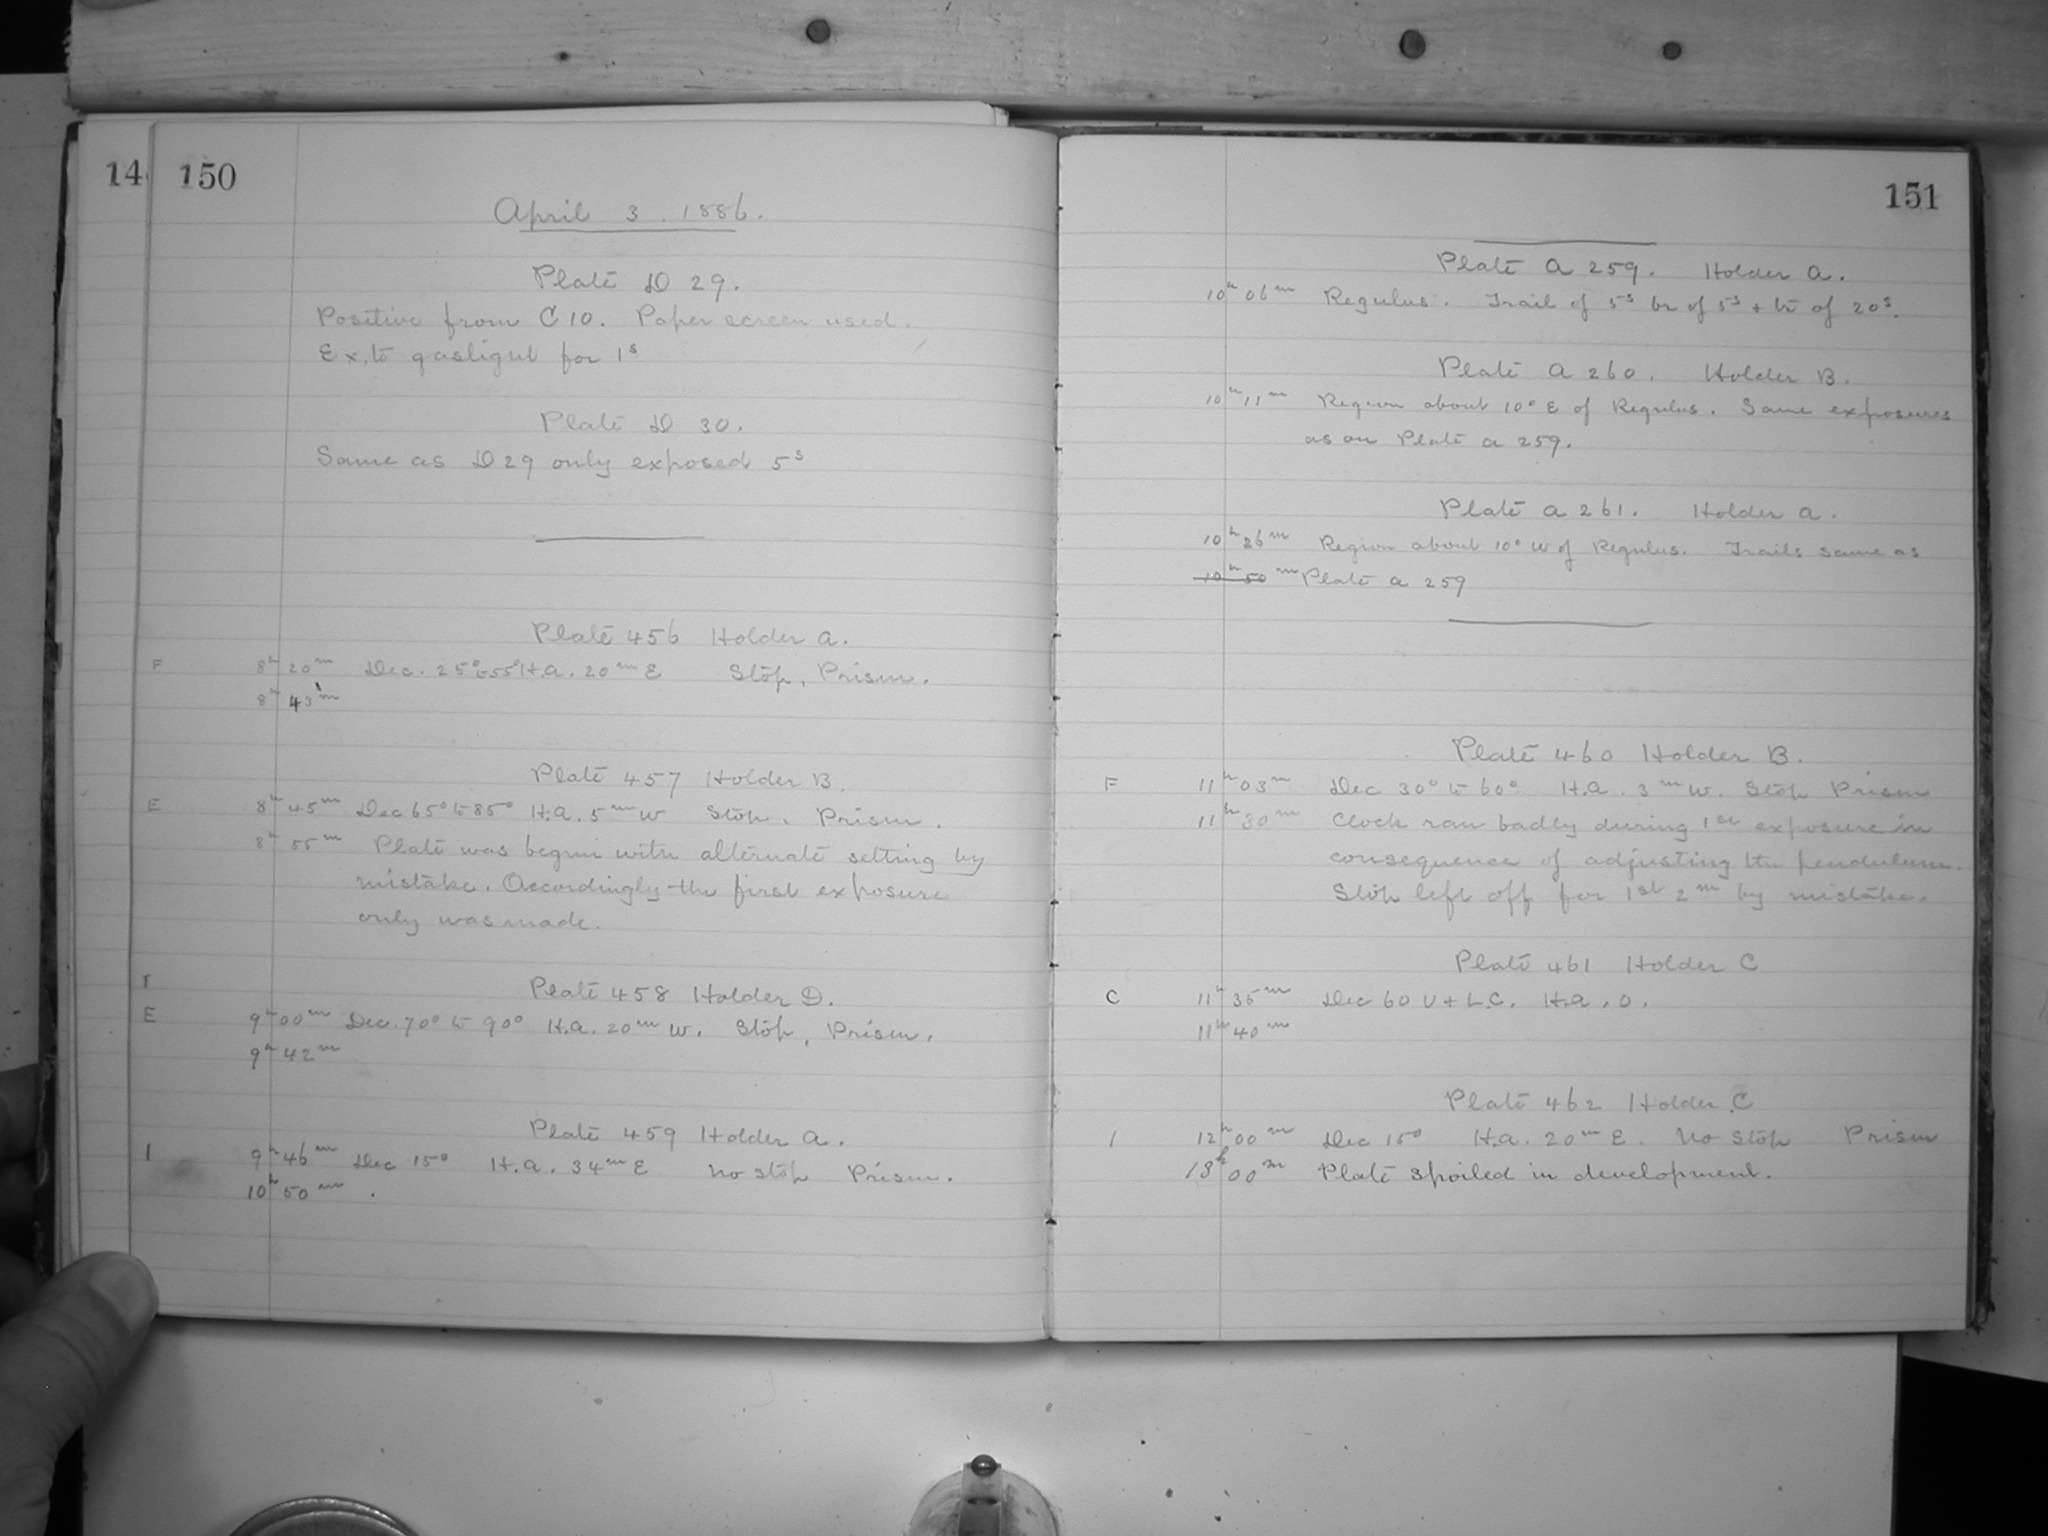 14
150
April 3. 1886.
Plate D 29.
Positive from C 10. Paper screen used.
Ex. to gaslight for 1s
Plate D 30.
Same as D 29 only exposed 5s
Plate 456 Holder A.
F 8h 20m Dec. 25° to 55° H.A. 20m E Stop, Prism.
8h 43m
Plate 457 Holder B.
E 8h 45m Dec 65° to 85° H.A. 5m W Stop, Prism.
8h 55m Plate was begun with alternate setting by
mistake. Accordingly the first exposure
only was made.
Plate 458 Holder D.
E 9h 00m Dec. 70° to 90° H.A. 20m W. Stop, Prism.
9h 42m
Plate 459 Holder A.
1 9h 46m Dec 15° H.A. 34m E No stop Prism.
10h 50m.
151
Plate A 259. Holder A.
10h 06m Regulus. Trail of 5s br of 5s + br of 20s.
Plate A 260. Holder B.
10h 11m Region about 10° E of Regulus. Same exposures
as on Plate A 259.
Plate A 261. Holder A.
10h 26m Region about 10° W of Regulus. Trails same as
10h 50m Plate A 259
Plate 460 Holder B.
F 11h 03m Dec 30° to 60° H.A. 3m W. Stop Prism
11h 30m Clock ran badly during 1st exposure in
consequence of adjusting the pendulum.
Stop left off for 1st 2m by mistake.
Plate 461 Holder C
C 11h 35m Dec 60 U + L.C. H.A. 0.
11h 40m
Plate 462 Holder C
1 12h 00m Dec 15° H.A. 20m E. No Stop Prism
13h 00m Plate spoiled in development.